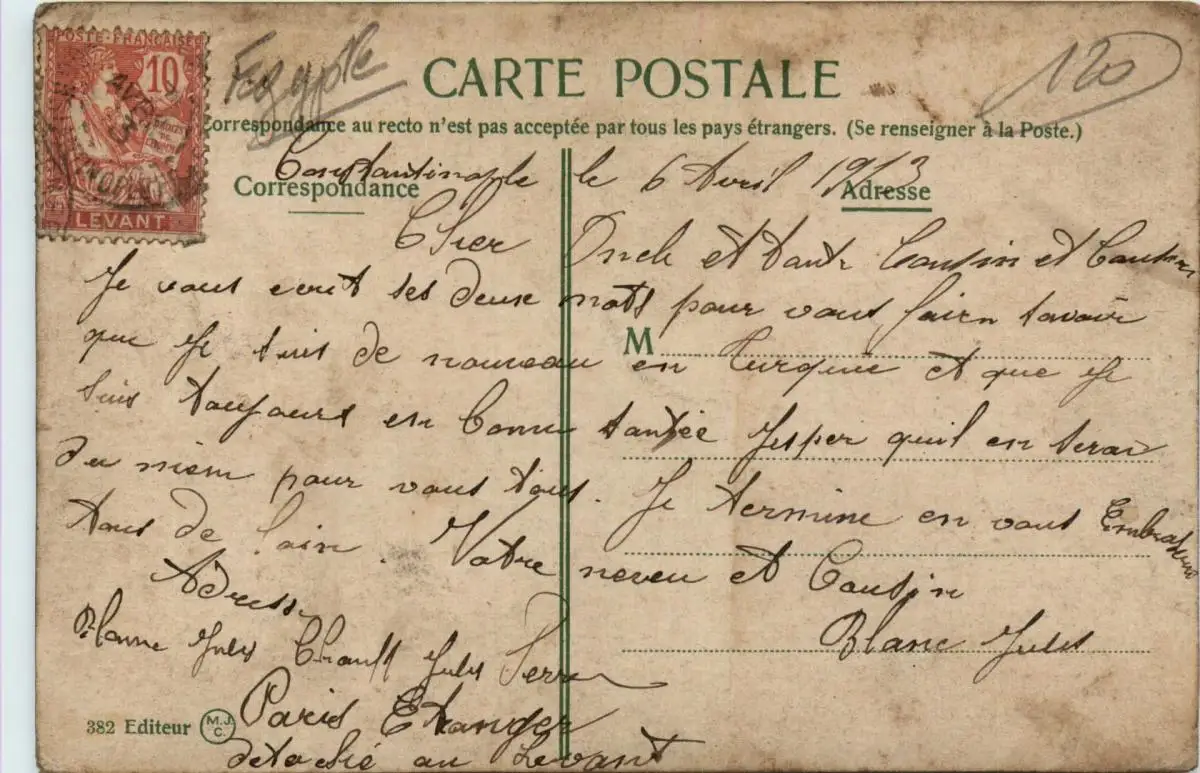 POSTE FRANÇAISE
10
LEVANT
Egypte
120
CARTE POSTALE
Correspondance au recto n'est pas acceptée par tous les pays étrangers. (Se renseigner à la Poste.)
Correspondance
Adresse
Constantinople le 6 Avril 1913
Cher Oncle et tante Cousin et Cousine
Je vous ecrit ses deux mots pour vous faire savoir
M
que je suis de nouveau en Turquie et que je
suis toujours en bonne santée Jesper quil en serai
du mem pour vous tous. Je termine en vous Embrassant
tous de loin. Votre neveu et Cousin
Blanc Jules
Adresse
Blanc Jules Chauff Jules Ferry
Paris Etranger
détaché au Levant
382 Editeur M.J.C.